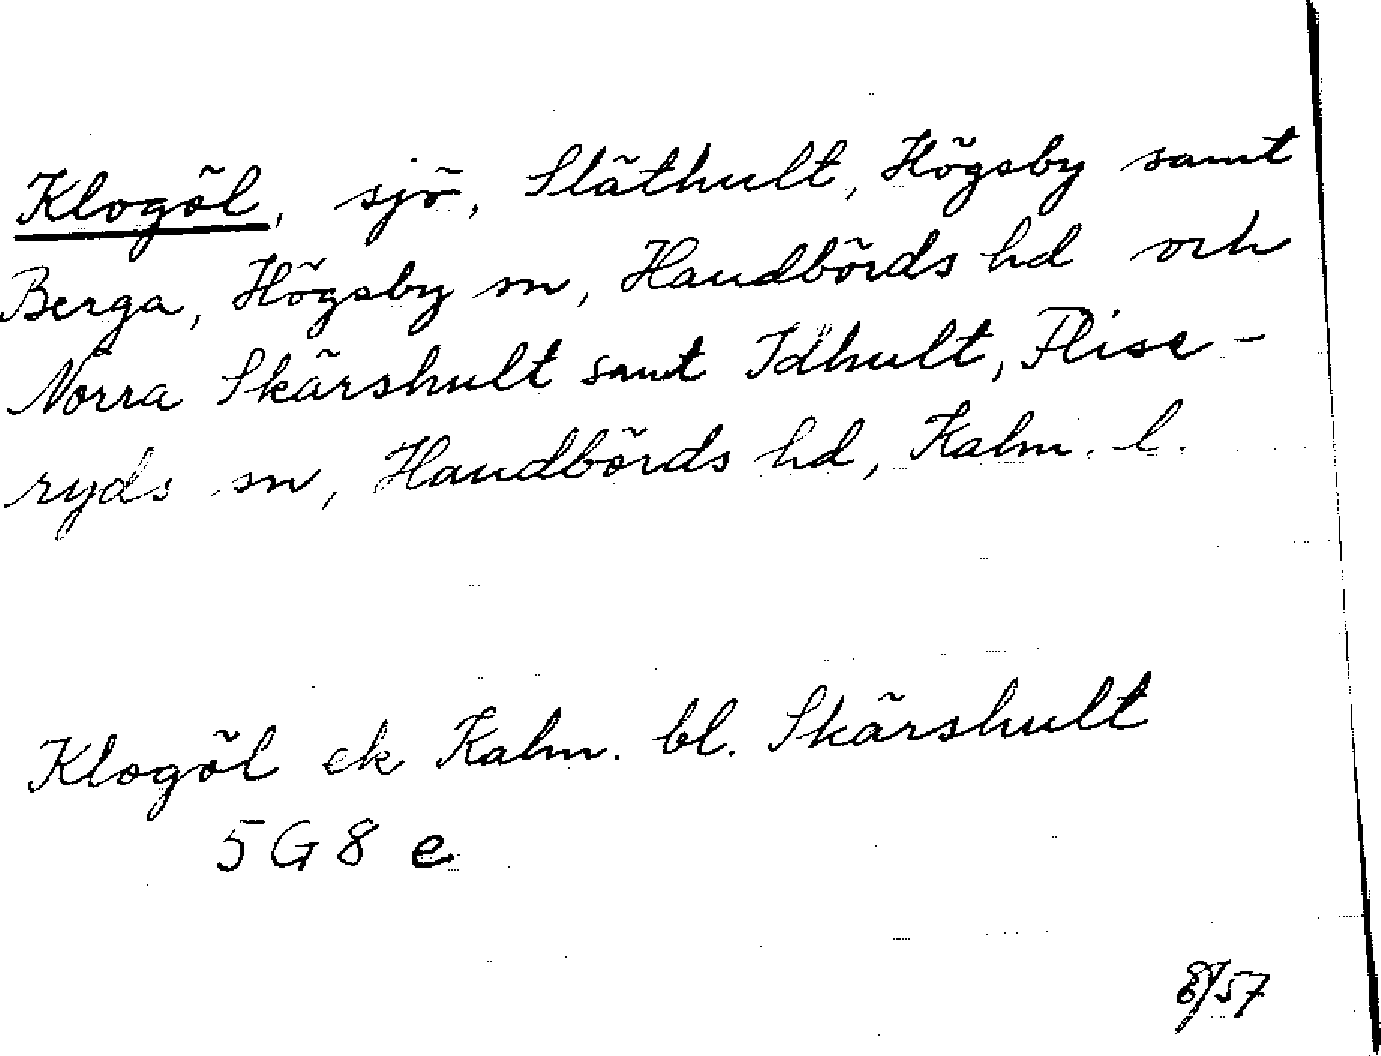 Klogöl, sjö, Släthult, Högsby samt
Berga, Högsby sn, Handbörds hd och
Norra Skärshult samt Idhult, Flise-
ryds sn, Handbörds hd, Kalm. l.
Klogöl ek Kalm. bl. Skärshult
5G8 e
8/57